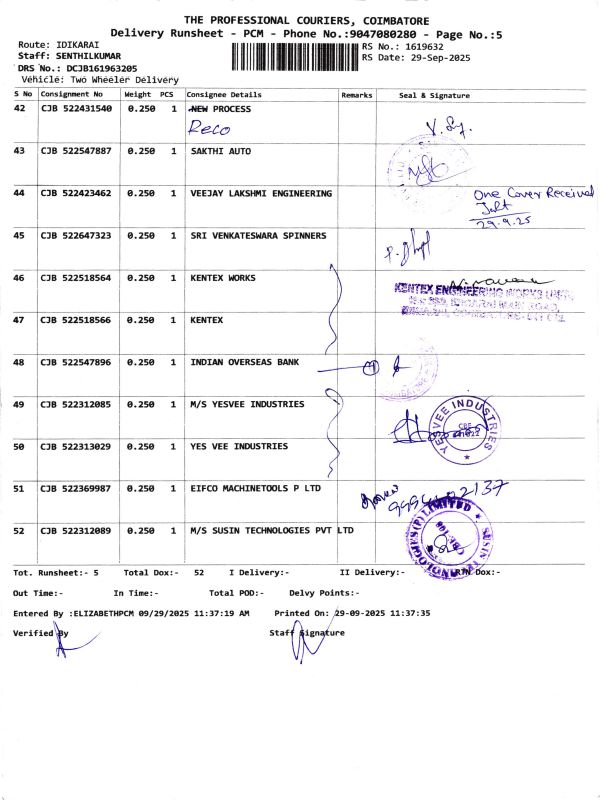 THE PROFESSIONAL COURIERS, COIMBATORE
Delivery Runsheet - PCM - Phone No.:9047080280 - Page No.:5
Route: IDIKARAI
RS No.: 1619632
Staff: SENTHILKUMAR
RS Date: 29-Sep-2025
DRS No.: DCJB161963205
Vehicle: Two Wheeler Delivery
S No Consignment No Weight PCS Consignee Details Remarks Seal & Signature
42 CJB 522431540 0.250 1 NEW PROCESS
Reco
43 CJB 522547887 0.250 1 SAKTHI AUTO
44 CJB 522423462 0.250 1 VEEJAY LAKSHMI ENGINEERING
One Cover Received
29.9.25
45 CJB 522647323 0.250 1 SRI VENKATESWARA SPINNERS
46 CJB 522518564 0.250 1 KENTEX WORKS
KENTEX ENGINEERING WORKS
47 CJB 522518566 0.250 1 KENTEX
48 CJB 522547896 0.250 1 INDIAN OVERSEAS BANK
49 CJB 522312085 0.250 1 M/S YESVEE INDUSTRIES
YESVEE INDUSTRIES
CBE
50 CJB 522313029 0.250 1 YES VEE INDUSTRIES
51 CJB 522369987 0.250 1 EIFCO MACHINETOOLS P LTD
52 CJB 522312089 0.250 1 M/S SUSIN TECHNOLOGIES PVT LTD
SUSIN TECHNOLOGIES (P) LIMITED
Tot. Runsheet:- 5 Total Dox:- 52 I Delivery:- II Delivery:- RTN Dox:-
Out Time:- In Time:- Total POD:- Delvy Points:-
Entered By :ELIZABETHPCM 09/29/2025 11:37:19 AM Printed On: 29-09-2025 11:37:35
Verified By Staff Signature